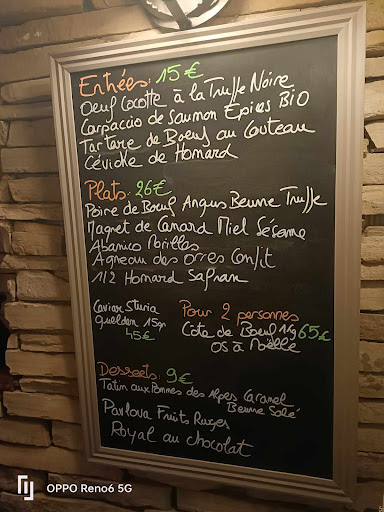 Entrées: 15€
Oeuf Cocotte à la Truffe Noire
Carpaccio de Saumon Epices BIO
Tartare de Boeuf au Couteau
Céviche de Homard
Plats: 26€
Poire de Boeuf Angus Beurre Truffe
Magret de Canard Miel Sésame
Abanico Morilles
Agneau des Orres Confit
1/2 Homard Safran
Caviar Sturia
15gr
45€
Pour 2 personnes
Côte de Boeuf 1kg 65€
OS à Moëlle
Desserts: 9€
Tatin aux Pommes des Alpes Caramel
Beurre Salé
Pavlova Fruits Rouges
Royal au chocolat
OPPO Reno6 5G